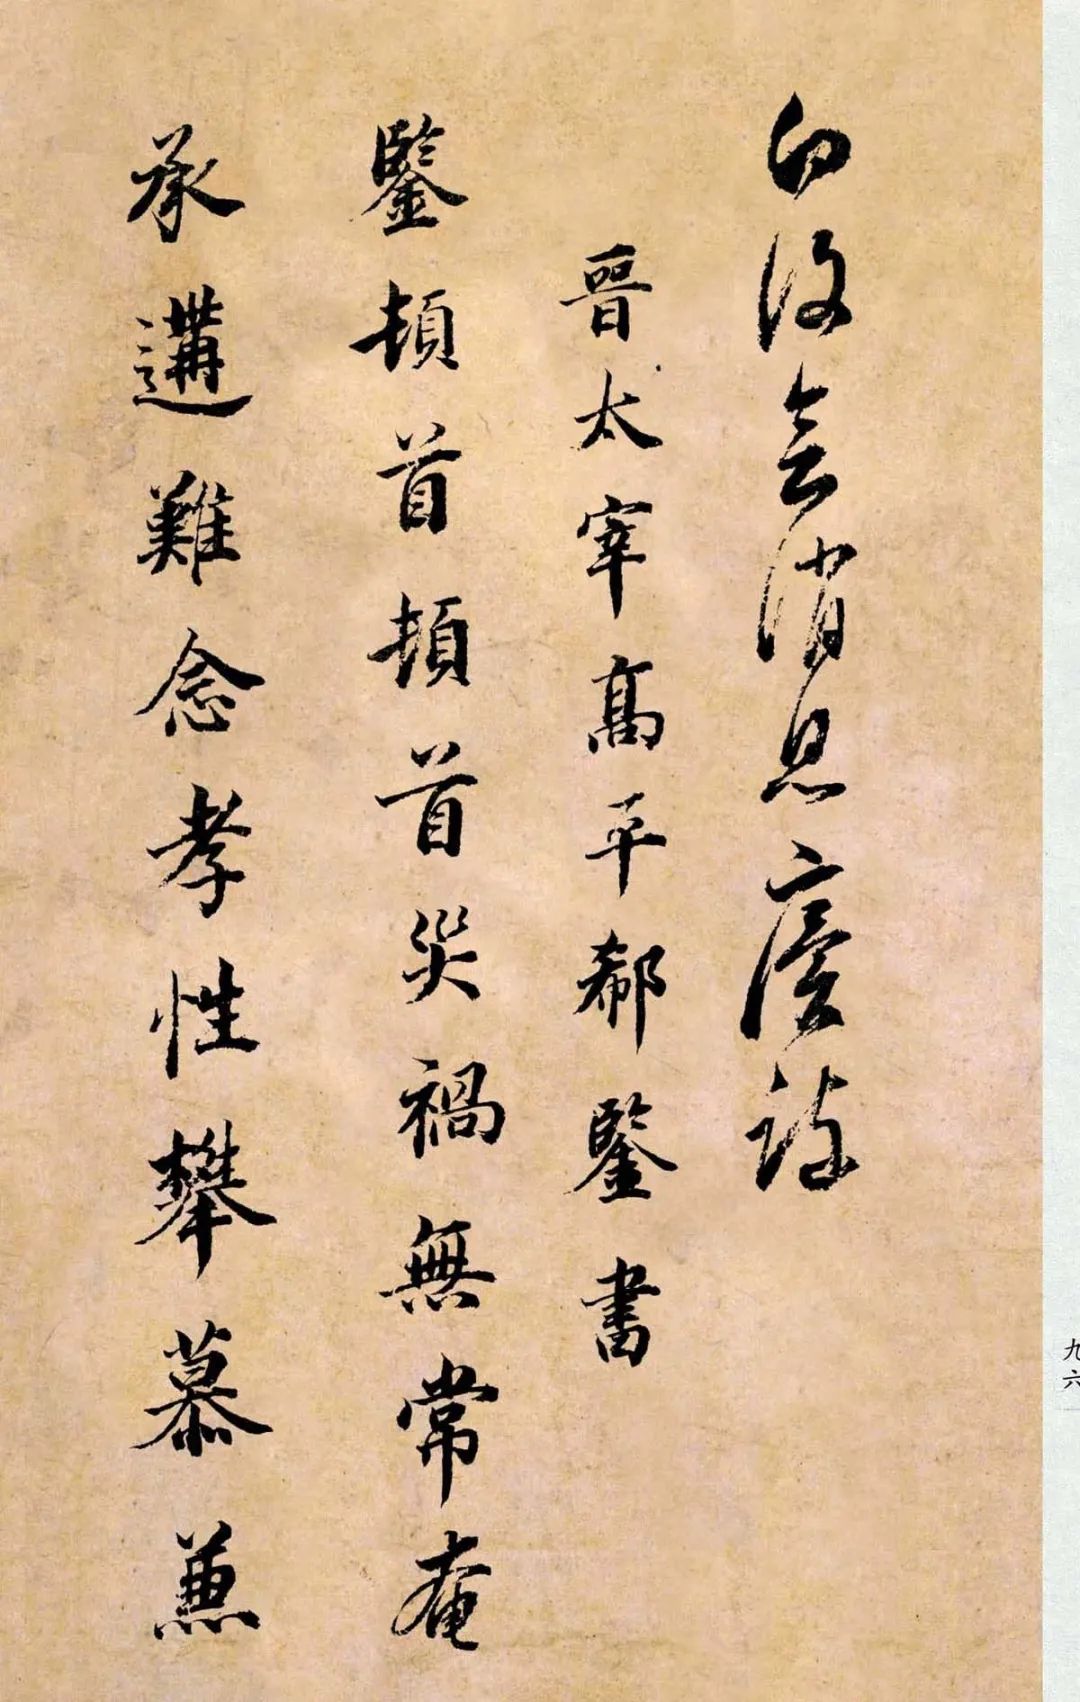 白復會消息廙疏
晉太宰高平郗鑒書
鑒頓首頓首災禍無常奄
承遘難念孝性攀慕兼
九六